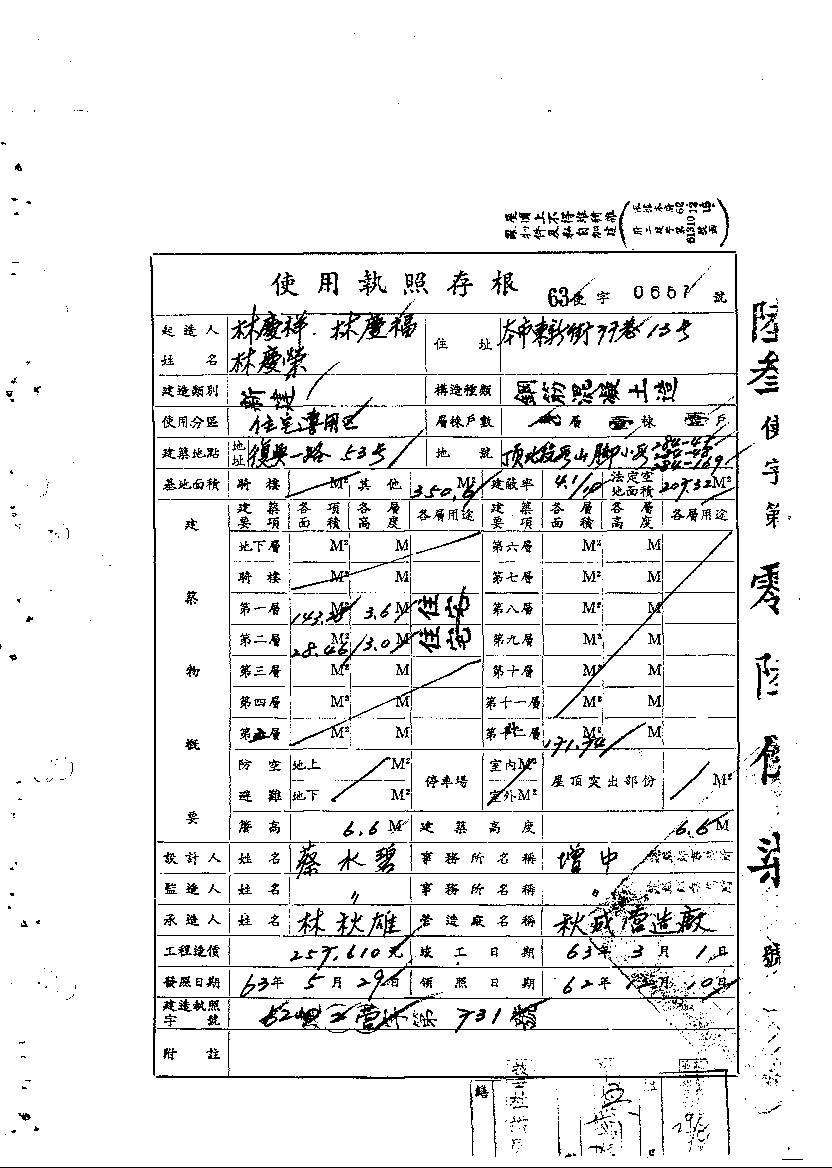 屋頂上不得堆積雜
物件及私自加建
使用執照存根
63使字 0667 號
起造人姓名 林慶祥．林慶福
林慶榮
住址 本市東新街77巷13号
建造類別 新建
構造種類 鋼筋混凝土造
使用分區 住宅專用區
層棟戶數 層 棟 壹戶
建築地點 地址 復興一路53号
地號 頂北投段山腳小段 284-47
284-48
284-169
基地面積 騎樓 M² 其他 350.6 M² 建蔽率 4.1/10 法定空地面積 209.32 M²
建築物概要
建築要項 各項面積 各層高度 各層用途 建築要項 各層面積 各層高度 各層用途
地下層 M² M 第六層 M² M
騎樓 M² M 第七層 M² M
第一層 M² 3.6 M 住宅 第八層 M² M
第二層 28.46 M² 3.0 M 住宅 第九層 M² M
第三層 M² M 第十層 M² M
第四層 M² M 第十一層 M² M
第五層 M² M 第十二層 171.74 M² M
防空避難 地上 M² 地下 M² 停車場 室內M² 室外M² 屋頂突出部份 M²
簷高 6.6 M 建築高度 6.6 M
設計人 姓名 蔡水碧 事務所名稱 增中
監造人 姓名 〃 事務所名稱 〃
承造人 姓名 林秋雄 營造廠名稱 秋盛營造廠
工程造價 257,610元 竣工日期 63年3月1日
發照日期 63年5月29日 領照日期 62年12月10日
建造執照字號 第731號
附註
陸叁使字第零陸
號